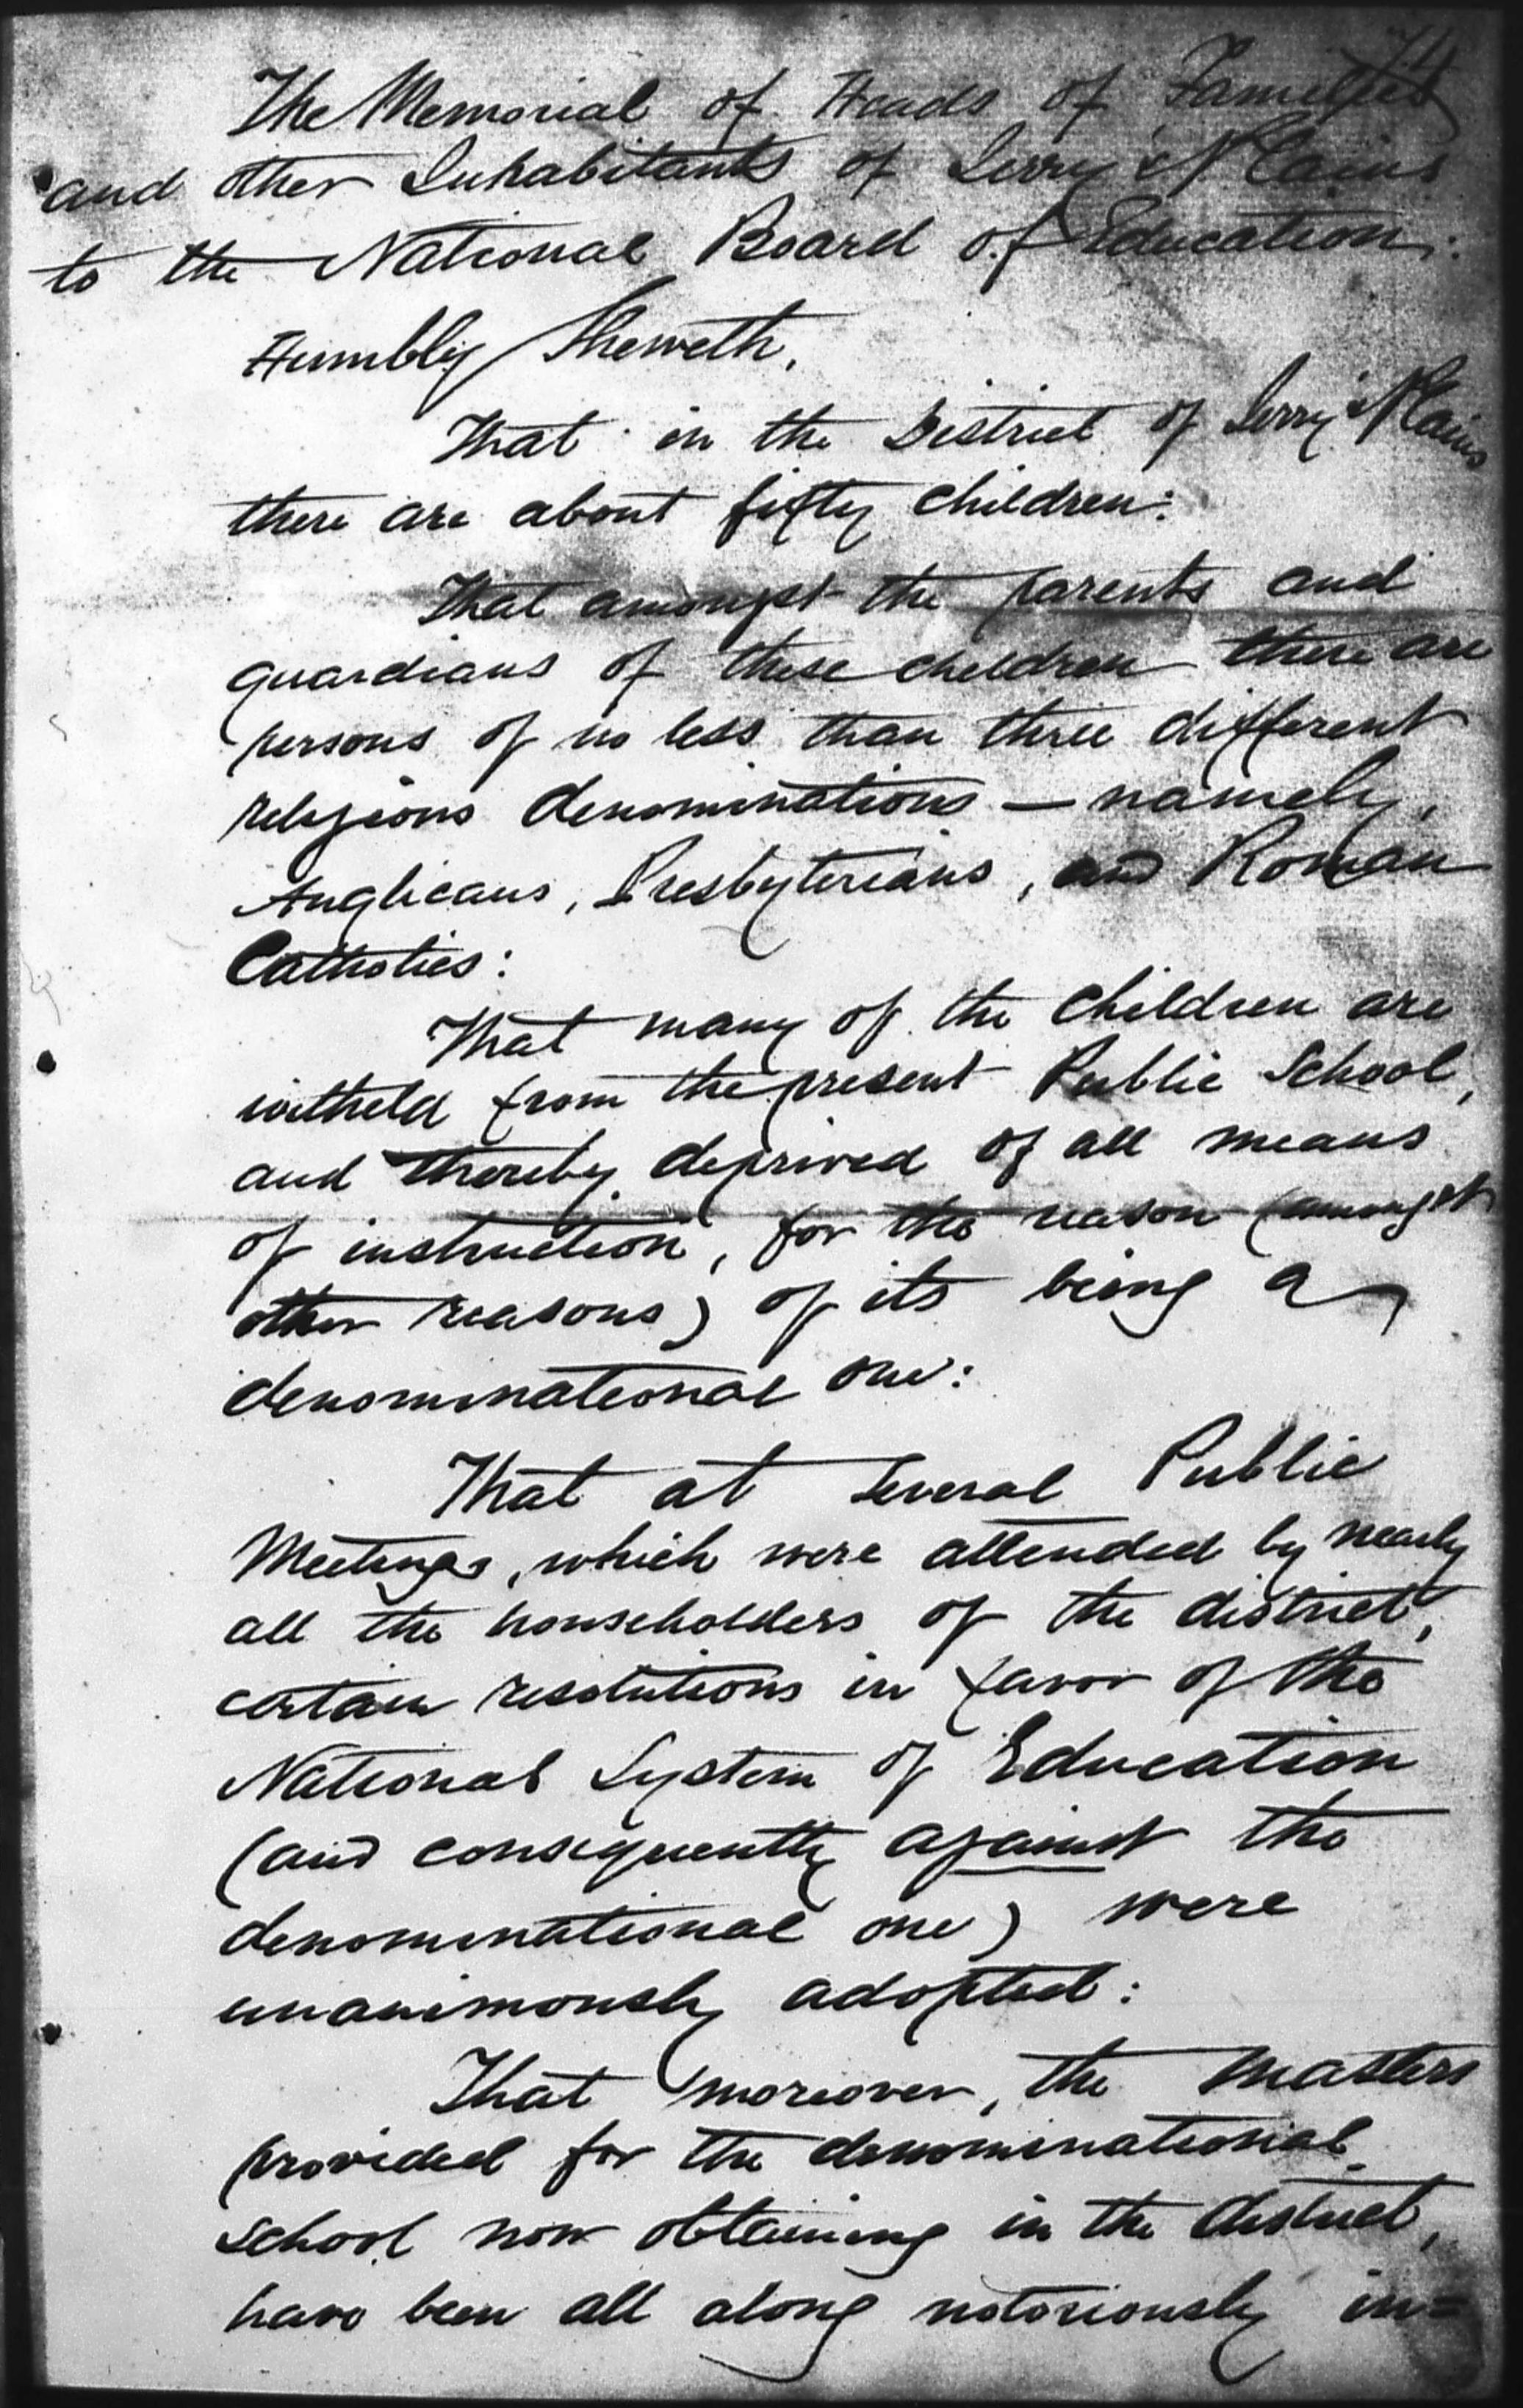 74
The Memorial of Heads of Families
and other Inhabitants of Jerry's Plains
to the National Board of Education:
Humbly Sheweth,
That in the District of Jerry's Plains
there are about fifty children:
That amongst the parents and
guardians of these children there are
persons of no less than three different
religious denominations — namely,
Anglicans, Presbyterians, and Roman
Catholics:
That many of the children are
witheld from the present Public School,
and thereby deprived of all means
of instruction, for the reason (amongst
other reasons) of its being a
denominational one:
That at several Public
Meetings, which were attended by nearly
all the householders of the district,
certain resolutions in favor of the
National System of Education
(and consequently against the
denominational one) were
unanimously adopted:
That moreover, the masters
provided for the denominational
school now obtaining in the district,
have been all along notoriously in=